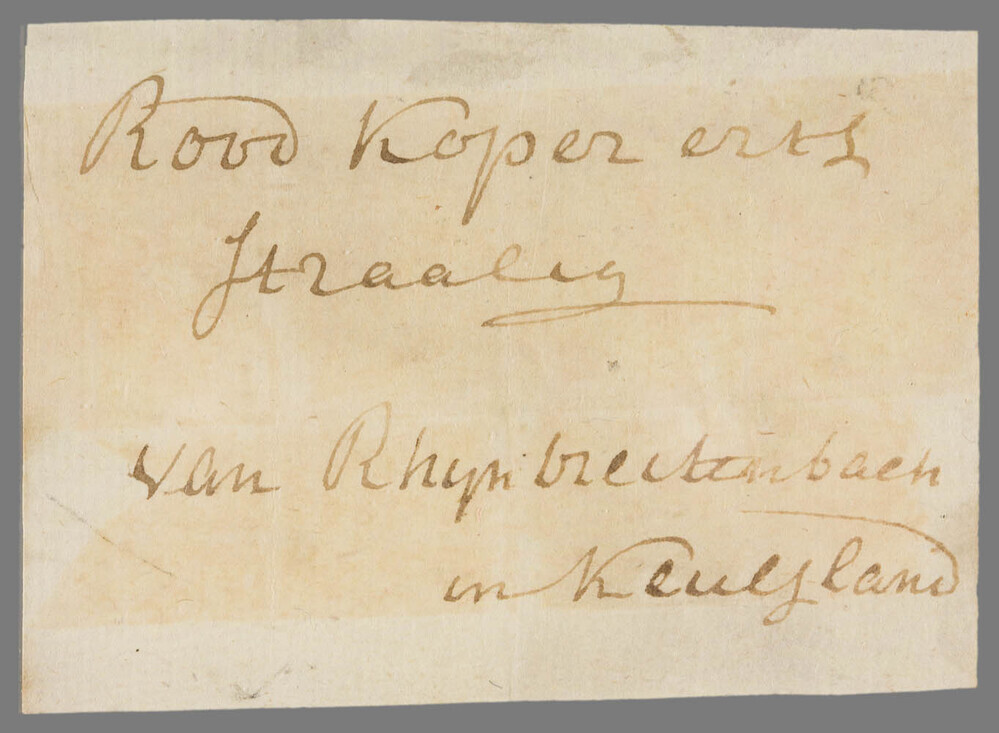 Rood Koper erts
Straalig
van Rhynbreitenbach
in Keulsland